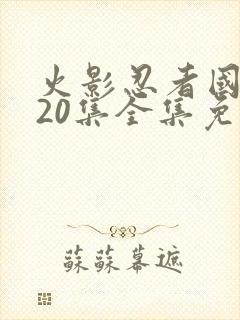 火影忍者國
20集全集免
蘇蘇幕遮